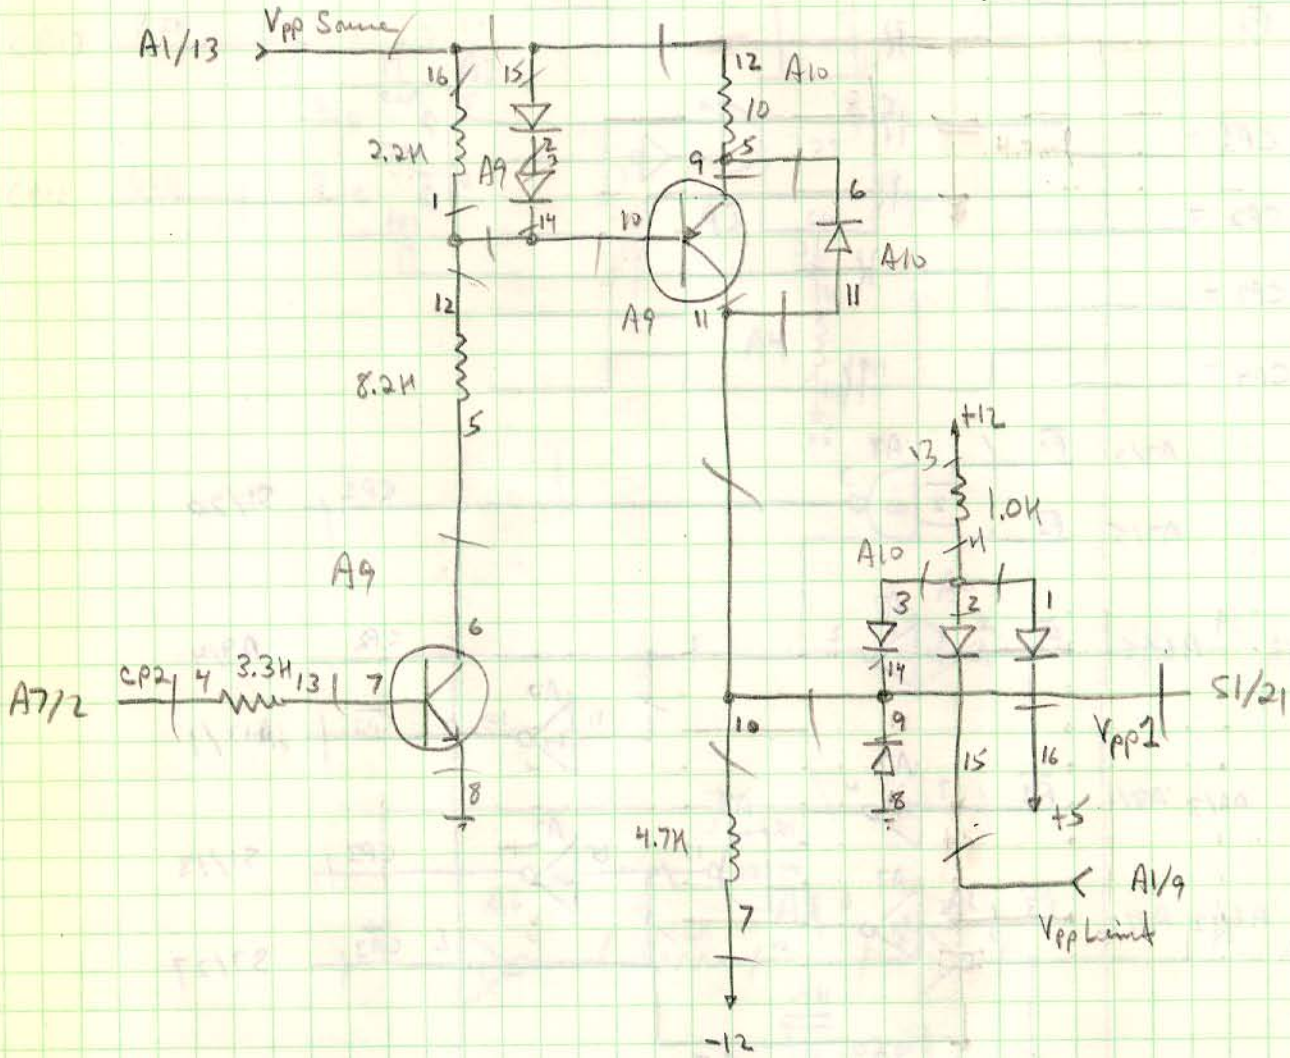 Vpp Source
A1/13
16 15 12 A10
10
2.2K A9 2 3 9 5
6
1 14 10
A10
12 A9 11 11
8.2K
5
+12
13
1.0K
A10 4
A9
3 2 1
6
CP2 4 3.3K 13 7 14
A7/2 S1/21
10 9 Vpp1
15 16
8 8 +5
4.7K
A1/9
7 Vpp Limit
-12